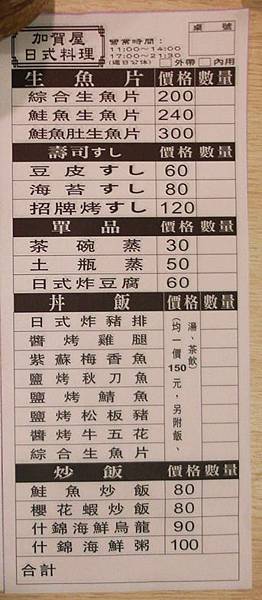 加賀屋
日式料理
桌號
營業時間：
11:00～14:00
17:00～21:30
(週日公休) □外帶 □內用
生魚片 價格 數量
綜合生魚片 200
鮭魚生魚片 240
鮭魚肚生魚片 300
壽司すし 價格 數量
豆皮すし 60
海苔すし 80
招牌烤すし 120
單品 價格 數量
茶碗蒸 30
土瓶蒸 50
日式炸豆腐 60
丼飯 價格 數量
日式炸豬排
醬烤雞腿
紫蘇梅香魚
鹽烤秋刀魚
鹽烤鯖魚
鹽烤松板豬
醬烤牛五花
綜合生魚片
(均一價150元，另附飯、
湯、茶飲)
炒飯 價格 數量
鮭魚炒飯 80
櫻花蝦炒飯 80
什錦海鮮烏龍 90
什錦海鮮粥 100
合計